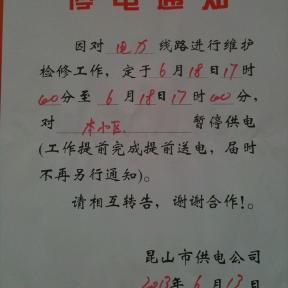 停电通知
因对 电力 线路进行维护
检修工作，定于6月18日17时
00分至 6月18日17时00分，
对 本小区 暂停供电
(工作提前完成提前送电，届时
不再另行通知)。
请相互转告，谢谢合作!。
昆山市供电公司
2013年6月13日